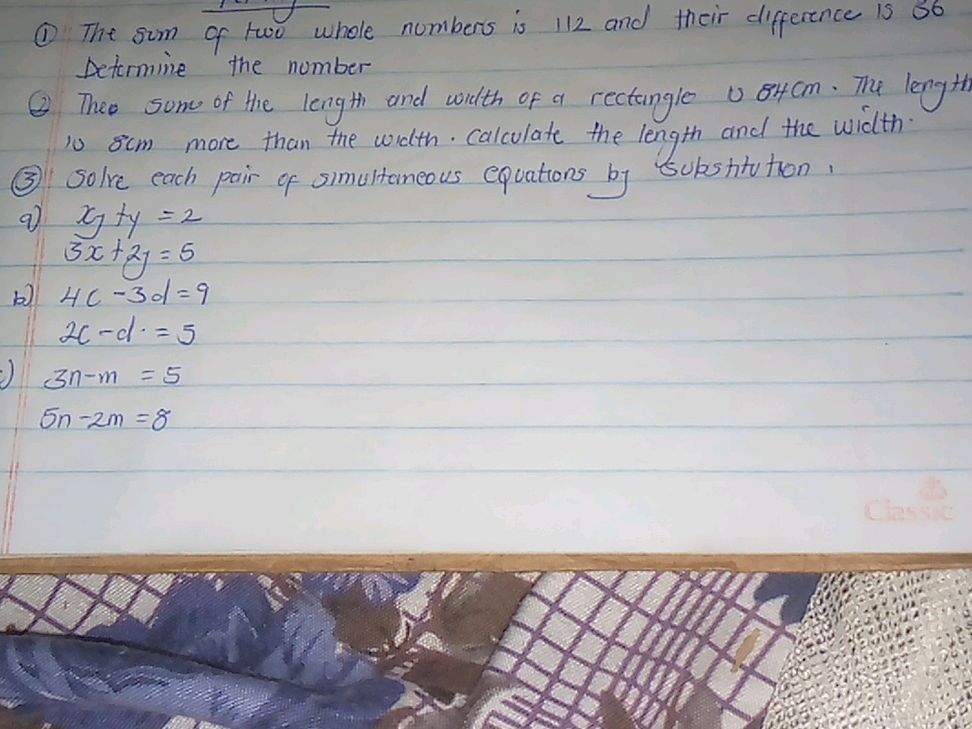 ① The sum of two whole numbers is 112 and their difference is 36
Determine the number
② Theo sum of the length and width of a rectangle is 84cm. The length
is 8cm more than the width. Calculate the length and the width.
③ Solve each pair of simultaneous equations by substitution.
a) xy + y = 2
3x + 2y = 5
b) 4c - 3d = 9
2c - d = 5
c) 3n - m = 5
5n - 2m = 8
Classic